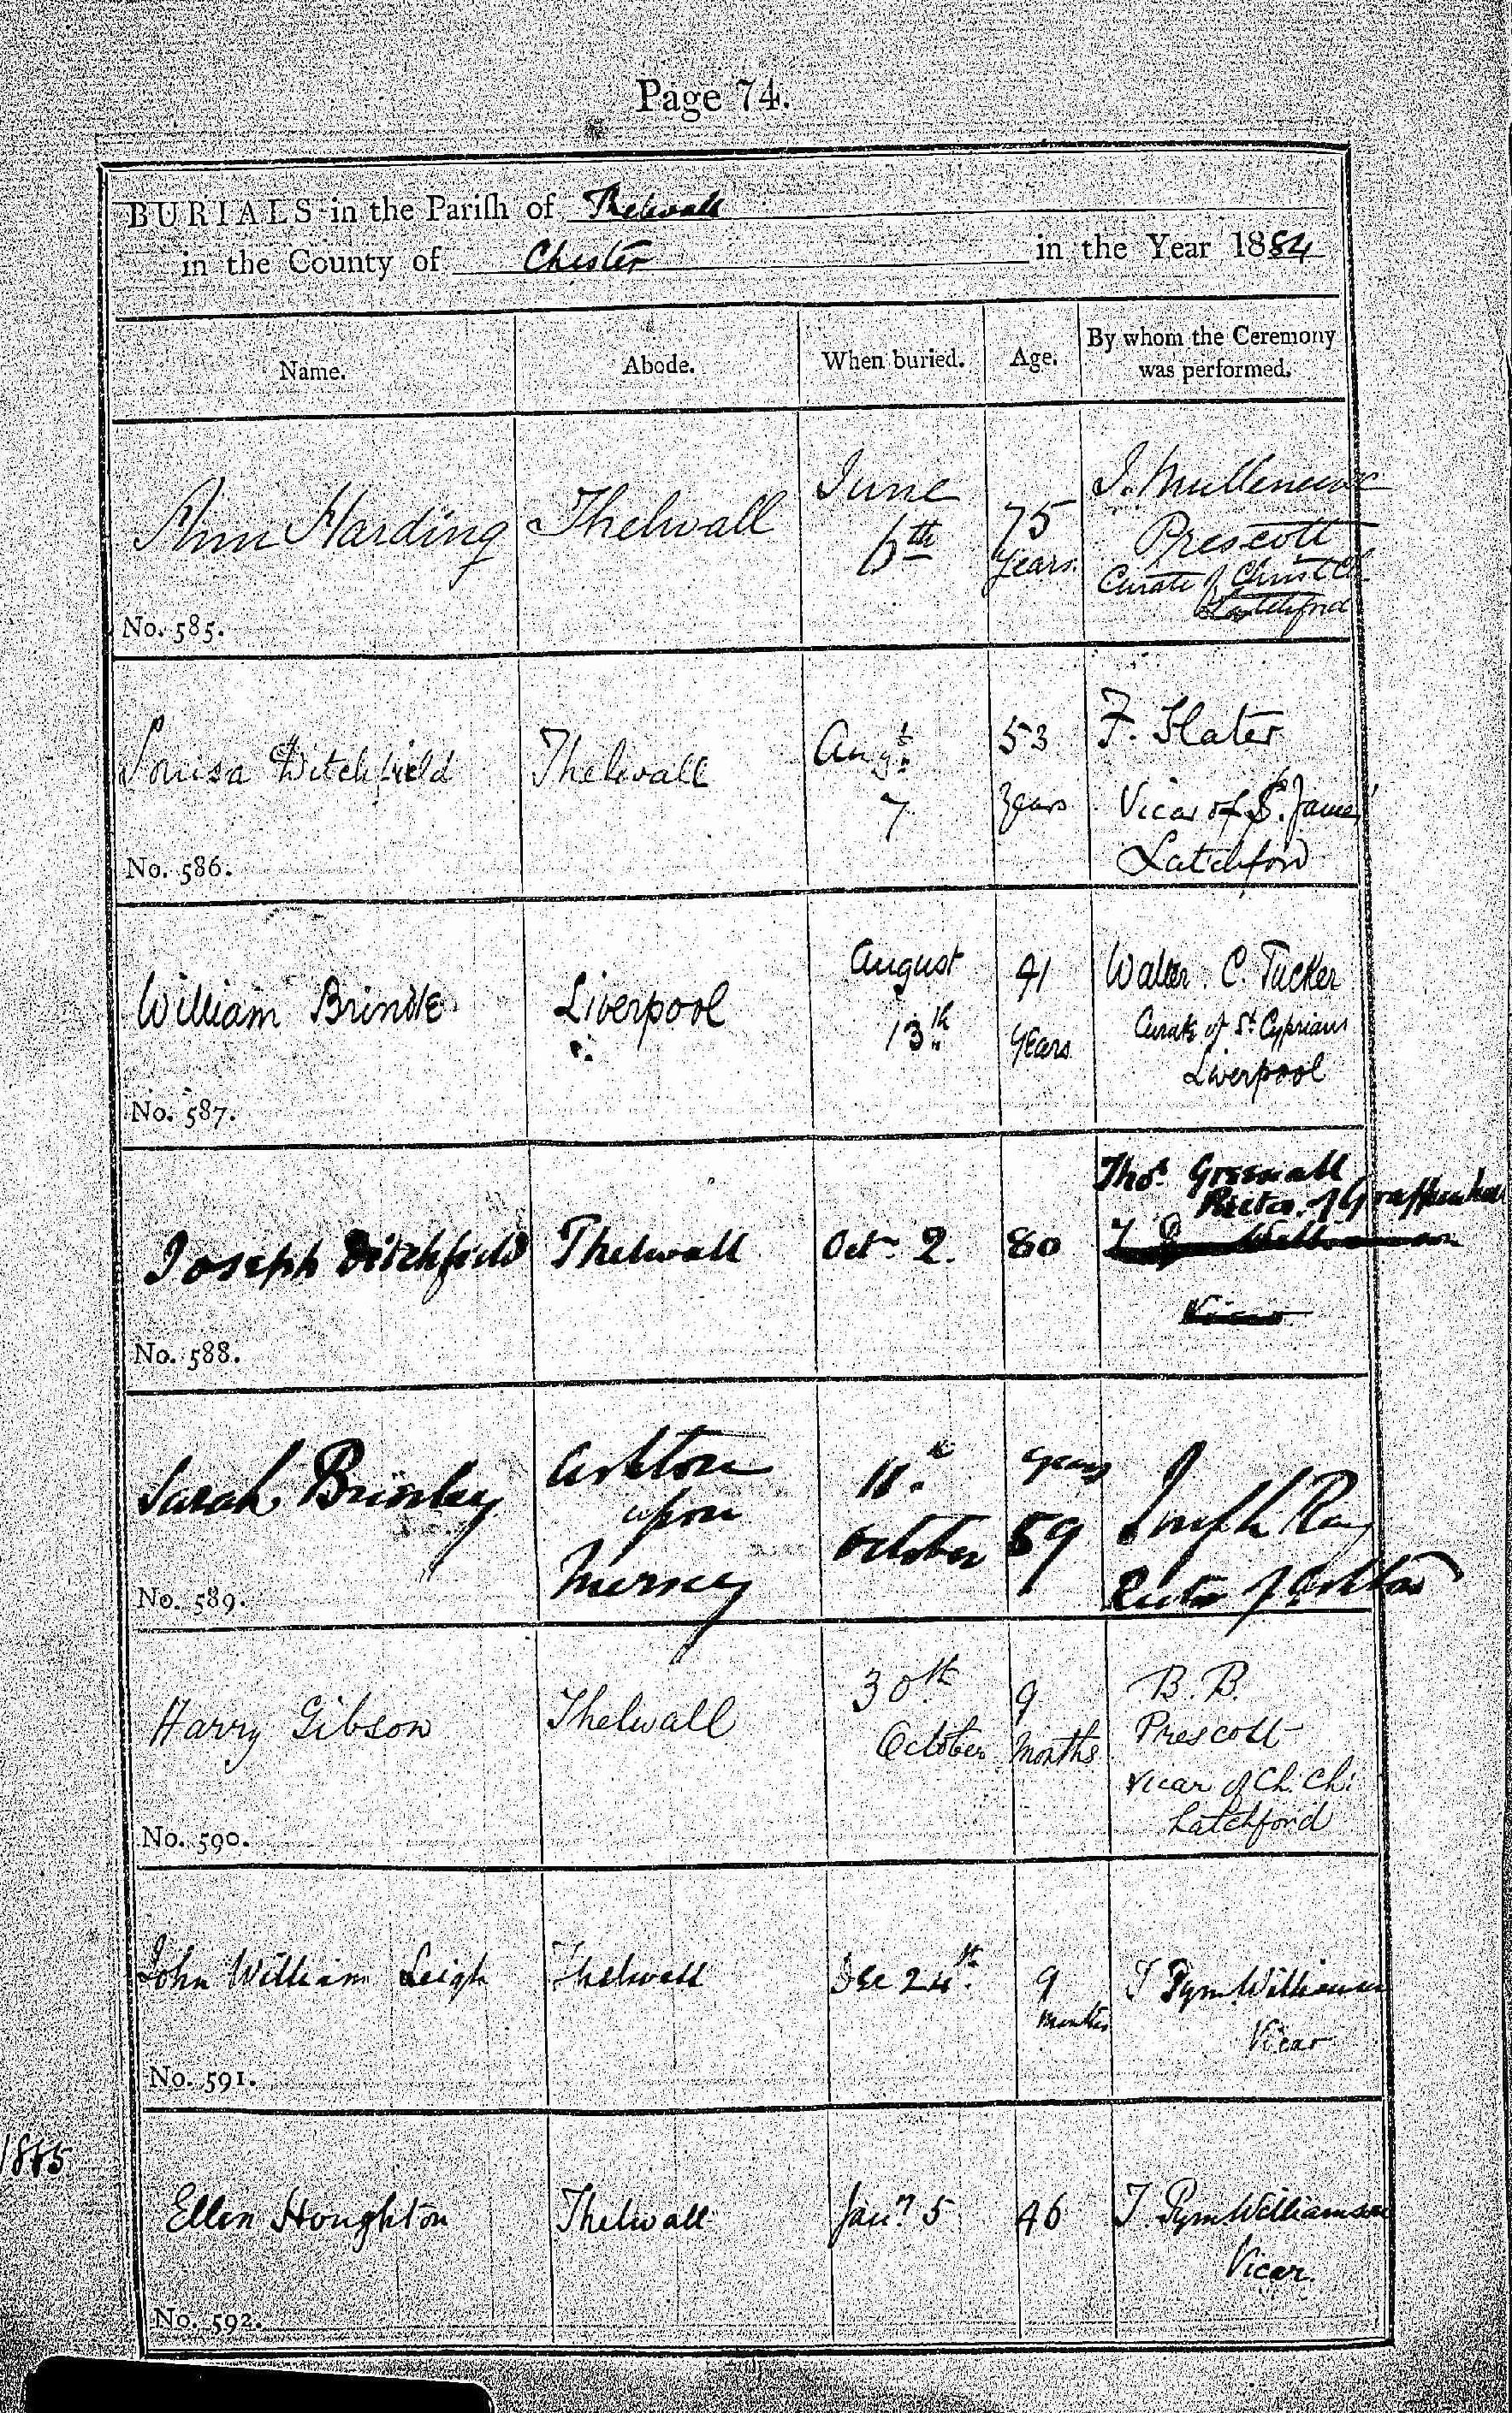 Page 74.
BURIALS in the Parish of Thelwall
in the County of Chester in the Year 1884
Name. Abode. When buried. Age. By whom the Ceremony was performed.
Ann Harding Thelwall June 6th 75 Years. J. Mulleneux Prescott Curate of Christ Ch. Latchford
No. 585.
Louisa Ditchfield Thelwall Augt. 7 53 Years F. Slater Vicar of St. James' Latchford
No. 586.
William Brindle Liverpool August 13th 41 Years Walter. C. Tucker Curate of St. Cyprians Liverpool
No. 587.
Joseph Ditchfield Thelwall Octr. 2. 80 Thos. Greenall Rector of Grappenhall
Vicar
No. 588.
Sarah Brimley Ashton upon Mersey 11.th October years 59 Joseph Ray Rector of Ashton
No. 589.
Harry Gibson Thelwall 30th October 9 Months B. B. Prescott Vicar of Ch: Ch: Latchford
No. 590.
John William Leigh Thelwall Dec 24th. 9 months T Pym Williamson Vicar
No. 591.
1885
Ellen Houghton Thelwall Jany. 5 46 T. Pym Williamson Vicar.
No. 592.